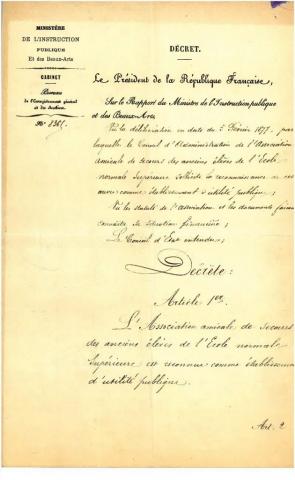 MINISTÈRE
DE L'INSTRUCTION
PUBLIQUE
Et des Beaux-Arts
CABINET
Bureau
de l'Enregistrement général
et des Archives.
DÉCRET.
Le Président de la République Française,
Sur le Rapport du Ministre de l'Instruction publique
et des Beaux-Arts,
Vu la délibération en date du 5 Février 1877, par
laquelle le Conseil d'Administration de l'Association
amicale de secours des anciens élèves de l'École
normale Supérieure sollicite la reconnaissance de cette
œuvre comme établissement d'utilité publique;
Vu les statuts de l'association et les documents faisant
connaître sa situation financière;
Le Conseil d'État entendu;
Décrète:
Article 1er.
L'Association amicale de secours
des anciens élèves de l'École normale
Supérieure est reconnue comme établissement
d'utilité publique.
Art. 2